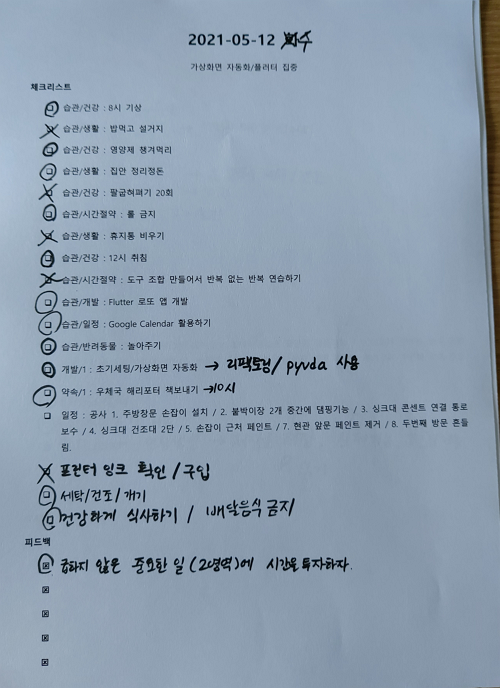 2021-05-12 화수
가상화면 자동화/플러터 집중
체크리스트
습관/건강 : 8시 기상
습관/생활 : 밥먹고 설거지
습관/건강 : 영양제 챙겨먹리
습관/생활 : 집안 정리정돈
습관/건강 : 팔굽혀펴기 20회
습관/시간절약 : 롤 금지
습관/생활 : 휴지통 비우기
습관/건강 : 12시 취침
습관/시간절약 : 도구 조합 만들어서 반복 없는 반복 연습하기
습관/개발 : Flutter 로또 앱 개발
습관/일정 : Google Calendar 활용하기
습관/반려동물 : 놀아주기
개발/1 : 초기세팅/가상화면 자동화 → 리팩토링/ pyvda 사용
약속/1 : 우체국 해리포터 책보내기 →10시
일정 : 공사 1. 주방창문 손잡이 설치 / 2. 붙박이장 2개 중간에 댐핑기능 / 3. 싱크대 콘센트 연결 통로
보수 / 4. 싱크대 건조대 2단 / 5. 손잡이 근처 페인트 / 7. 현관 앞문 페인트 제거 / 8. 두번째 방문 흔들
림.
프린터 잉크 확인/구입
세탁/건조/개기
건강하게 식사하기 / 배달음식 금지
피드백
급하지 않은 중요한 일 (2영역)에 시간을 투자하자.